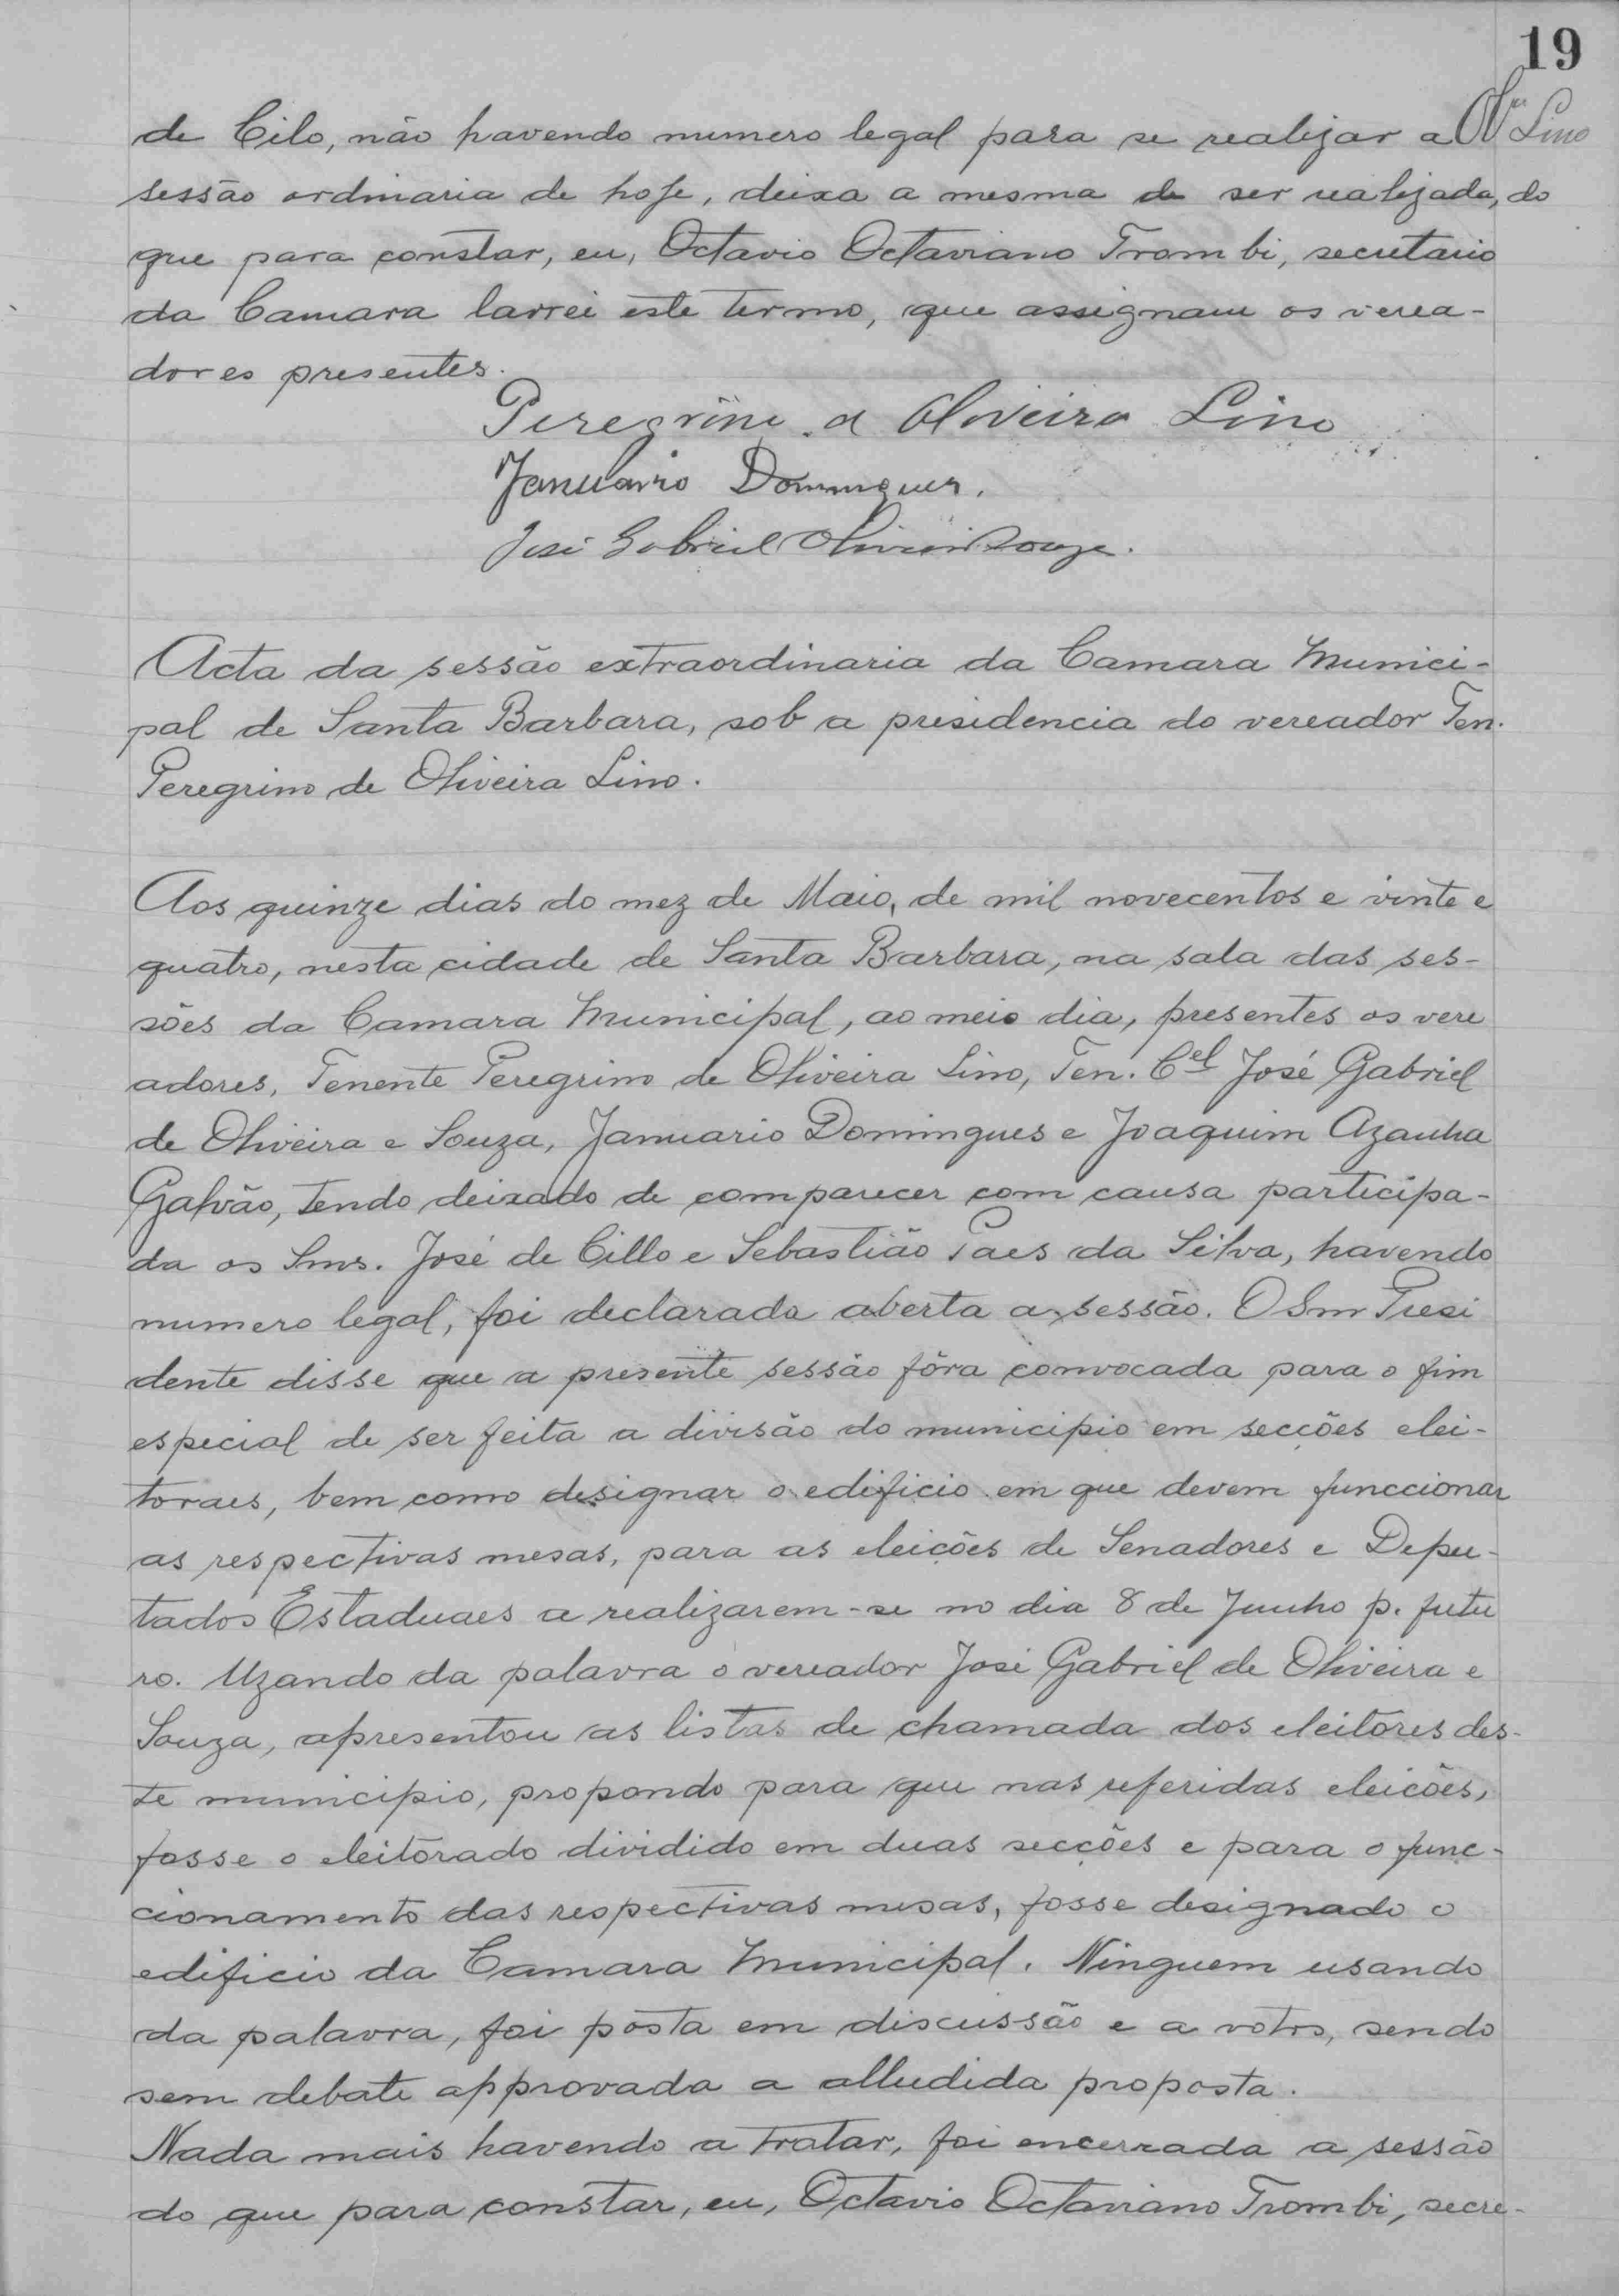 19
Olvra Lino
de Cilo, não havendo numero legal para se realizar a
sessão ordinaria de hoje, deixa a mesma de ser realizada, do
que para constar, eu, Octavio Octaviano Trombi, secretario
da Camara lavrei este termo, que assignam os verea-
dores presentes.
Peregrino d Oliveira Lino
Januario Domingues.
José Gabriel Oliveira Souza.
Acta da sessão extraordinaria da Camara Munici-
pal de Santa Barbara, sob a presidencia do vereador Ten.
Peregrino de Oliveira Lino.
Aos quinze dias do mez de Maio, de mil novecentos e vinte e
quatro, nesta cidade de Santa Barbara, na sala das ses-
sões da Camara Municipal, ao meio dia, presentes os vere
adores, Tenente Peregrino de Oliveira Lino, Ten. Cel José Gabriel
de Oliveira e Souza, Januario Domingues e Joaquim Azanha
Galvão, tendo deixado de comparecer com causa participa-
da os Snrs. José de Cillo e Sebastião Paes da Silva, havendo
numero legal, foi declarada aberta a sessão. O Snr Presi
dente disse que a presente sessão fôra convocada para o fim
especial de ser feita a divisão do municipio em secções elei-
toraes, bem como designar o edificio em que devem funccionar
as respectivas mesas, para as eleições de Senadores e Depu-
tados Estaduaes a realizarem-se no dia 8 de Junho p. futu
ro. Uzando da palavra o vereador José Gabriel de Oliveira e
Souza, apresentou as listas de chamada dos eleitores des-
te municipio, propondo para que nas referidas eleições,
fosse o eleitorado dividido em duas secções e para o func-
cionamento das respectivas mesas, fosse designado o
edificio da Camara Municipal. Ninguem usando
da palavra, foi posta em discussão e a votos, sendo
sem debate approvada a alludida proposta.
Nada mais havendo a tratar, foi encerrada a sessão
do que para constar, eu, Octavio Octaviano Trombi, secre-